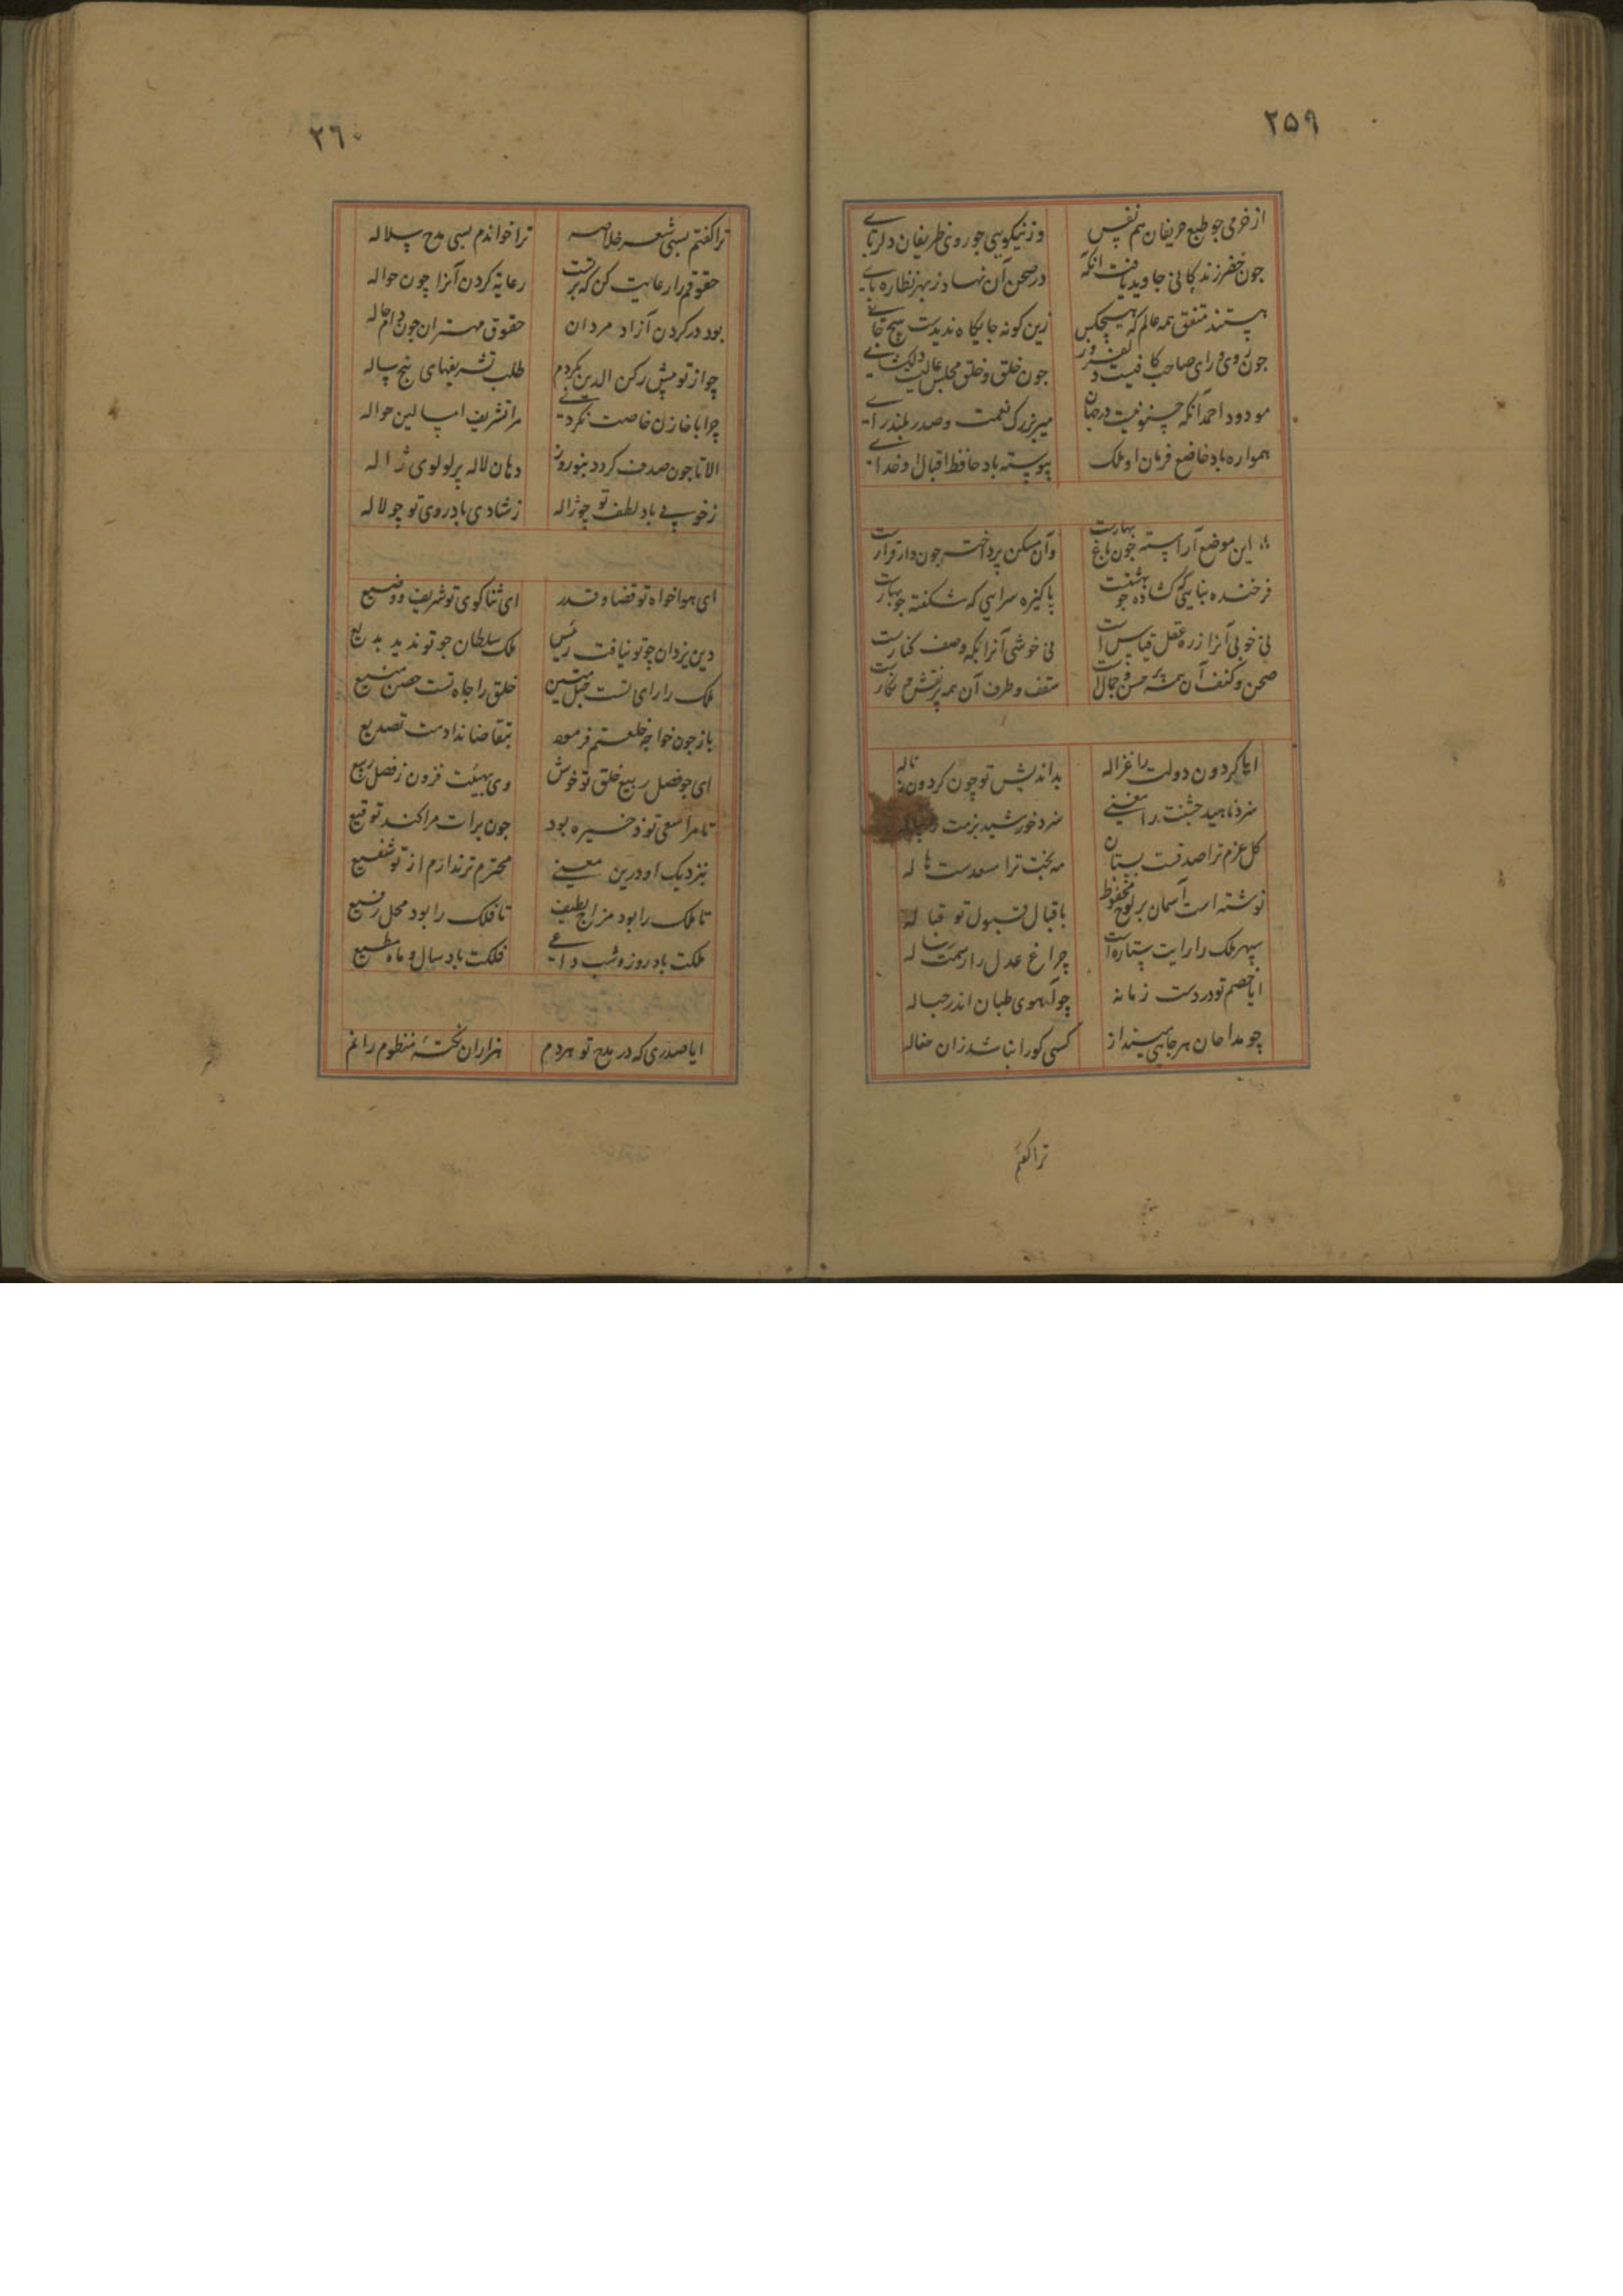 ۲۵۹
از خرمی چو طبع حریفان هم نفس وز نیکویی چو روی ظریفان دلربای
جون خضر زندگانی جاوید یافت آنکه در صحن آن نهاد ز بهر نظاره پای
هستند متفق همه عالم که هیچکس زین کونه جایکاه ندیدست هیچ جای
جون روی و رای صاحب کافیست دلفروز جون خلق و خلق مجلس عالیست دلکشای
مودود احمد آنکه چنو نیست در جهان میر بزرک نعمت و صدر بلند رای
همواره باد خاضع فرمان او ملک پیوسته باد حافظ اقبال او خدای
این موضع آراسته جون باغ بهارست وآن مسکن پرداخته جون دار قرارست
فرخنده بنایی که کشاده جو بهشتست پاکیزه سرایی که شکفته جو بهارست
نی خوبی آنرا ز ره عقل قیاس است نی خوشی آنرا بکه وصف کنارست
صحن و کنف آن همه پر حسن و جمال است سقف و طرف آن همه پر نقش و نکارست
ایا کردون دولت را غزاله بداندیش تو چون کردون ناله
سزد ناهید جشنت را مغنی سزد خورشید بزمت
کل عزم ترا صد قت بستان مه بخت ترا سعدست هاله
نوشته است آسمان بر لوح محفوظ باقبال قبول تو قباله
سپهر ملک را رایت ستاره است چراغ عدل را رسمت
ایا خصم تو در دست زمانه چو آهوی طبان اندر حباله
چو مداحان بهر جایی بینداز کسی کو را بناشد زان حثاله
تراکفتم
۲۶۰
تراکفتم بسی شعر خلاصه ترا خواندم بسی مدح سلاله
حقوقم را رعایت کن که برتست رعایه کردن آنرا چون حواله
بود در کردن آزاد مردان حقوق مهتران جون دام حاله
چو از تو پیش رکن الدین نکردم طلب تشریفهای پنج ساله
چرا با خازن خاصت نکردی مرا تشریف امسالین حواله
الا تا جون صدف کردد بنوروز دهان لاله پر لولوی ژاله
ز خوبی باد لطف تو چو ژاله ز شادی باد روی تو چو لاله
ای هواخواه تو قضا و قدر ای ثناکوی تو شریف و وضیع
دین یزدان چو تو نیافت رئیس ملک سلطان جو تو ندید بدیع
ملک را رای تست حبل متین خلق را جاه تست حصن منیع
باز جون خواجه خلعتم فرمود بتقاضا ندادمت تصدیع
ای جو فصل ربیع خلق تو خوش وی بهیئت فزون ز فصل ربیع
تا مرا سعی تو ذخیره بود جون برات مرا کند توقیع
بنزدیک او درین معنی محترم تر ندارم از تو شفیع
تا ملک را بود مزاج لطیف تا فلک را بود محل رفیع
ملکت باد روز و شب داعی فلکت باد سال و ماه مطیع
ایا صدری که در مدح تو هر دم هزاران نکتهٔ منظوم رانم